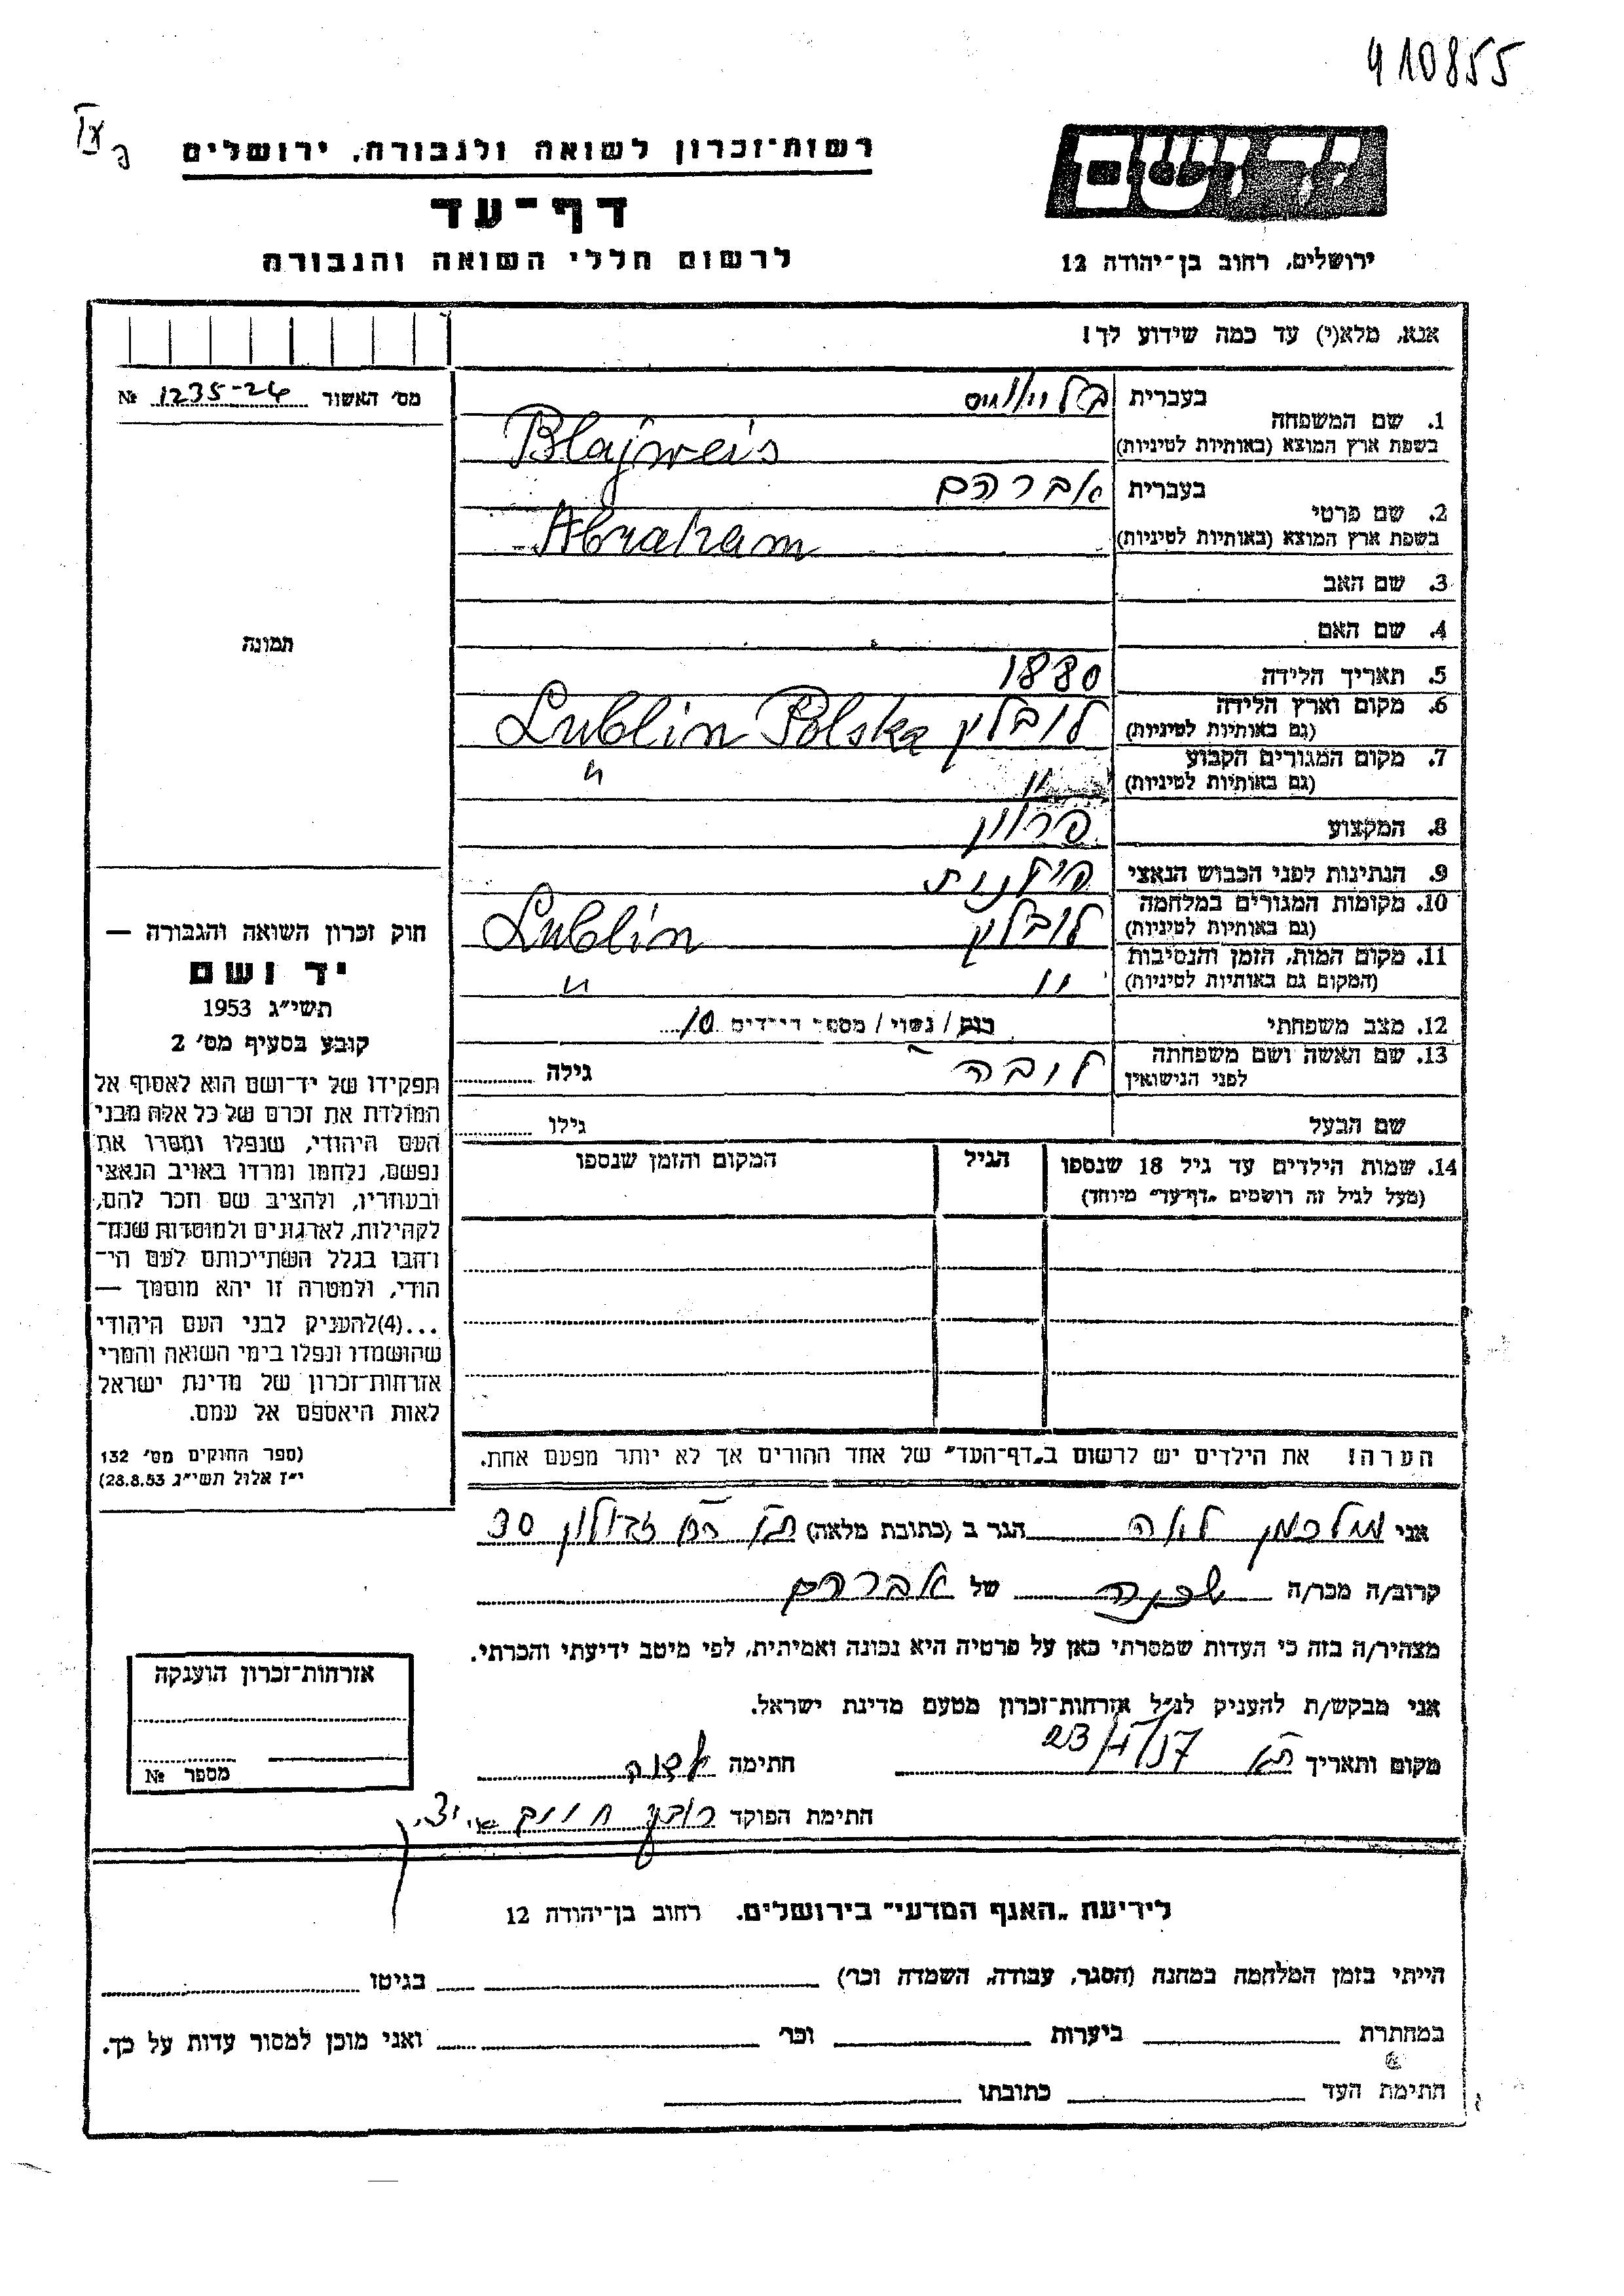 910855
רשות־זכרון לשואה ולגבורה, ירושלים
דף־עד
לרשום חללי השואה והגבורה
יד ושם
ירושלים, רחוב בן־יהודה 12
אנא, מלא(י) עד כמה שידוע לך!
מס׳ האשור 1235-24 №
1. שם המשפחה
בעברית
בשפת ארץ המוצא (באותיות לטיניות) Blajweis
2. שם פרטי
בעברית אברהם
בשפת ארץ המוצא (באותיות לטיניות) Abraham
3. שם האב
4. שם האם
תמונה
5. תאריך הלידה 1880
6. מקום וארץ הלידה
(גם באותיות לטיניות) לובלין Lublin Polska
7. מקום המגורים הקבוע
(גם באותיות לטיניות) " "
8. המקצוע פרוון
9. הנתינות לפני הכבוש הנאצי פולנית
10. מקומות המגורים במלחמה
(גם באותיות לטיניות) לובלין Lublin
11. מקום המות, הזמן והנסיבות
(המקום גם באותיות לטיניות) " "
12. מצב משפחתי רווק / נשוי / מספר הילדים 10
13. שם האשה ושם משפחתה
לפני הנישואין ליובה גילה
שם הבעל גילו
14. שמות הילדים עד גיל 18 שנספו הגיל המקום והזמן שנספו
(מעל לגיל זה רושמים „דף־עד״ מיוחד)
חוק זכרון השואה והגבורה —
יד ושם
תשי״ג 1953
קובע בסעיף מס׳ 2
תפקידו של יד־ושם הוא לאסוף אל
המולדת את זכרם של כל אלה מבני
העם היהודי, שנפלו ומסרו את
נפשם, נלחמו ומרדו באויב הנאצי
ובעוזריו, ולהציב שם וזכר להם,
לקהילות, לארגונים ולמוסדות שנח־
רהבו בגלל השתייכותם לעם הי־
הודי, ולמטרה זו יהא מוסמך —
...(4)להעניק לבני העם היהודי
שהושמדו ונפלו בימי השואה והמרי
אזרחות־זכרון של מדינת ישראל
לאות היאספם אל עמם.
(ספר החוקים מס׳ 132
י״ז אלול תשי״ג 28.8.53)
הערה! את הילדים יש לרשום ב„דף־העד״ של אחד ההורים אך לא יותר מפעם אחת.
אני לאה הגר ב (כתובת מלאה) ת״א רח׳ זבולון 30
קרוב/ה מכר/ה שכנה של אברהם
מצהיר/ה בזה כי העדות שמסרתי כאן על פרטיה היא נכונה ואמיתית, לפי מיטב ידיעתי והכרתי.
אני מבקש/ת להעניק לנ״ל אזרחות־זכרון מטעם מדינת ישראל.
מקום ותאריך ת״א חתימה
חתימת הפוקד
אזרחות־זכרון הוענקה
מספר №
לידיעת „האגף המדעי״ בירושלים, רחוב בן־יהודה 12
הייתי בזמן המלחמה במחנה (הסגר, עבודה, השמדה וכר׳) בגיטו
במחתרת ביערות וכר׳ ואני מוכן למסור עדות על כך.
חתימת העד כתובתו